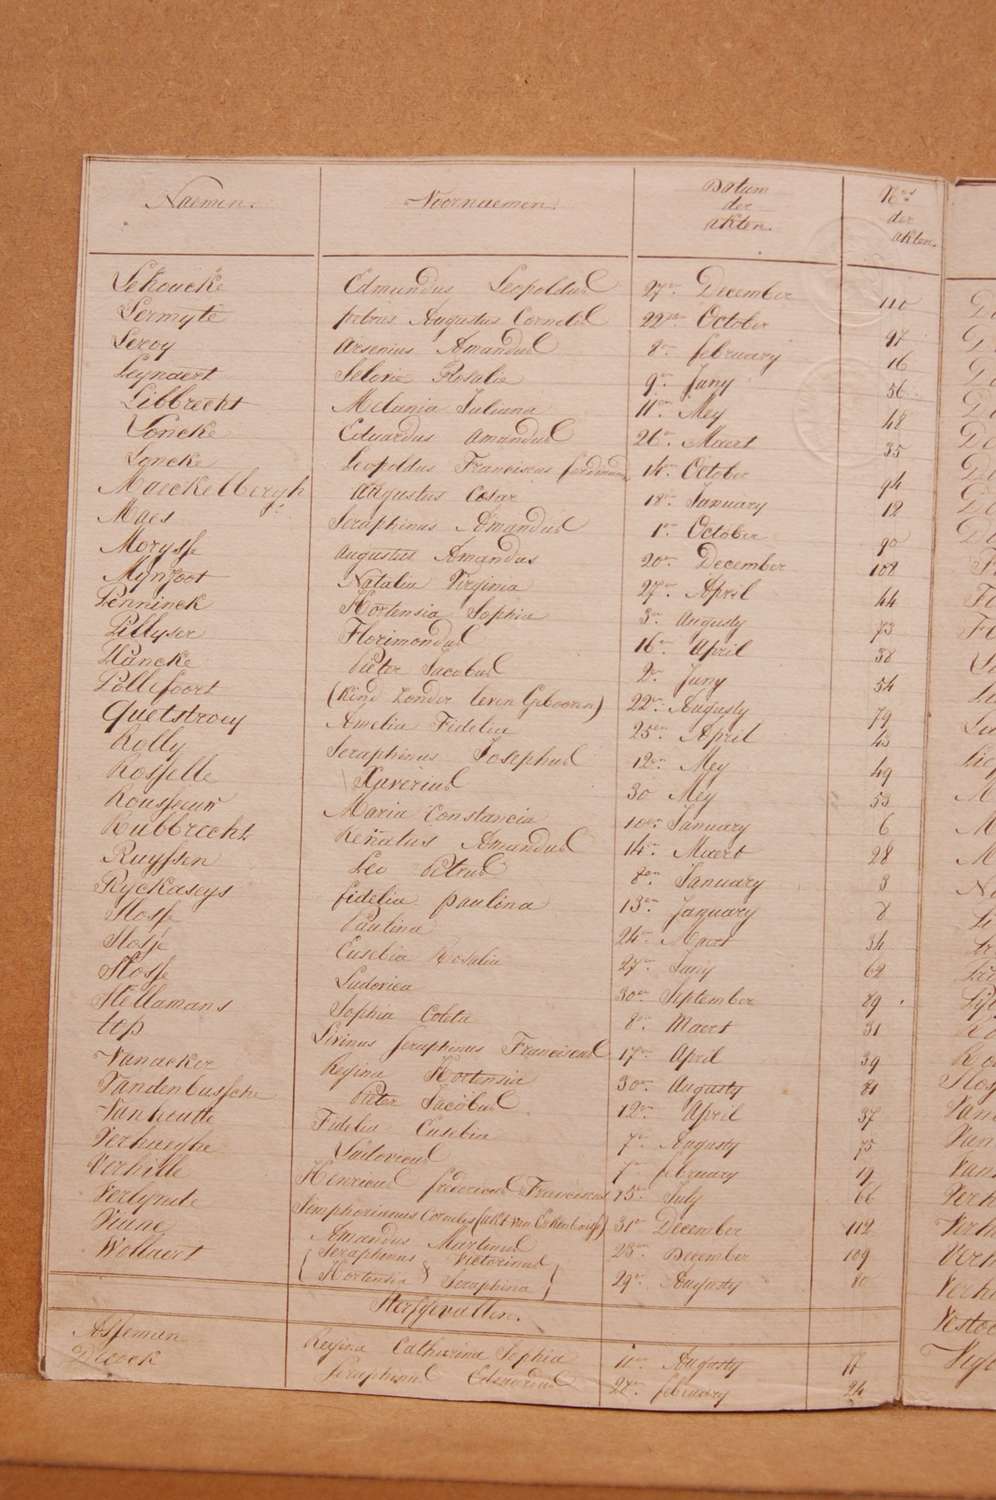 Naemen. Voornaemen. Datum der akten. N.os der akten.
Lekoucke Edmundus Leopoldus 27en December 110
Lermyte petrus Augustus Cornelis 22en October 97
Leroy Arsenius Amandus 8en february 16
Leynaert Silvie Rosalie 9en Juny 56
Libbrecht Melania Juliana 11en Mey 48
Loncke Eduardus Amandus 26en Maert 35
Loncke Leopoldus Franciscus ferdinandus 14en October 94
Maeckelbergh Augustus Cesar 18en January 12
Maes Seraphinus Amandus 1en October 90
Morysse Augustus Amandus 20en December 108
Mynfoot Natalia Virginia 27en April 44
Penninck Hortensia Sophia 3en Augusty 73
Pillyser Florimondus 16en April 38
Plancke Pieter Jacobus 2en Juny 54
Pollefoort (Kind Zonder leven Gebooren) 22en Augusty 79
Quetstroey Amelia Fidelia 25en April 43
Rolly Seraphinus Josephus 12en Mey 49
Rosselle Xaverius 30 Mey 53
Rousseeuw Maria Constancia 10en January 6
Rubbrecht Renatus Amandus 14en Maert 28
Ruyssen Leo Petrus 8en January 3
Ryckaseys fidelia paulina 13en January 8
Slosse Paulina 24en Maert 34
Slosse Eusebia Rosalia 27en Juny 62
Slosse Ludovica 30en September 89
Stellamans Sophia Coleta 8en Maert 31
top Livinus Seraphinus Franciscus 17en April 39
Vanacker Regina Hortensia 30en Augusty 81
Vandenbussche Pieter Jacobus 12en April 37
Vanhoutte Fidelis Eusebia 7en Augusty 75
Verhaeghe Ludovicus february 19
Verhille Henricus fredericus Franciscus 15en July 66
Verlynde Symphorianus Cornelis 31en December 112
Viane Amandus Martinus 23en December 109
Wollaert { Seraphinus Victorinus } 29en Augusty 80
{ Hortensia Seraphina }
Sterfgevallen.
Asseman Regina Catharina Sophia 10en Augusty 77
Decock Seraphinus Eduardus 28en february 24